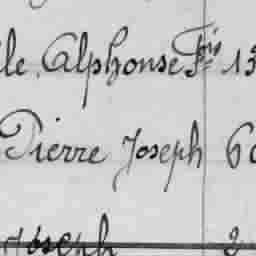 le Alphonse Fçois 13
Pierre Joseph 60
Joseph 2